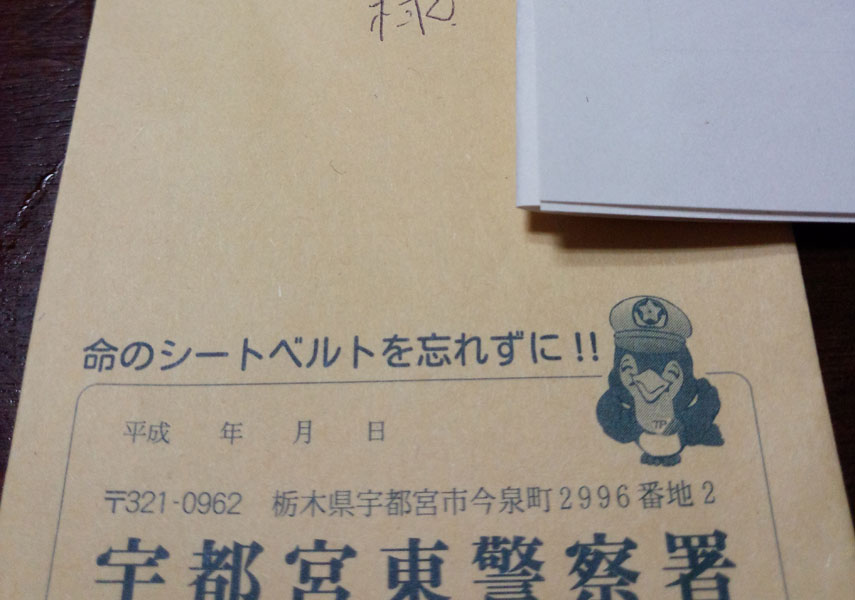 様
命のシートベルトを忘れずに!!
TP
平成　年　月　日
〒321-0962　栃木県宇都宮市今泉町2996番地2
宇都宮東警察署